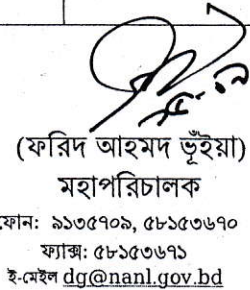 (ফরিদ আহমদ ভূঁইয়া)
মহাপরিচালক
ফোন: ৯১৩৫৭০৯, ৫৮১৫৩৬৭০
ফ্যাক্স: ৫৮১৫৩৬৭১
ই-মেইল dg@nanl.gov.bd